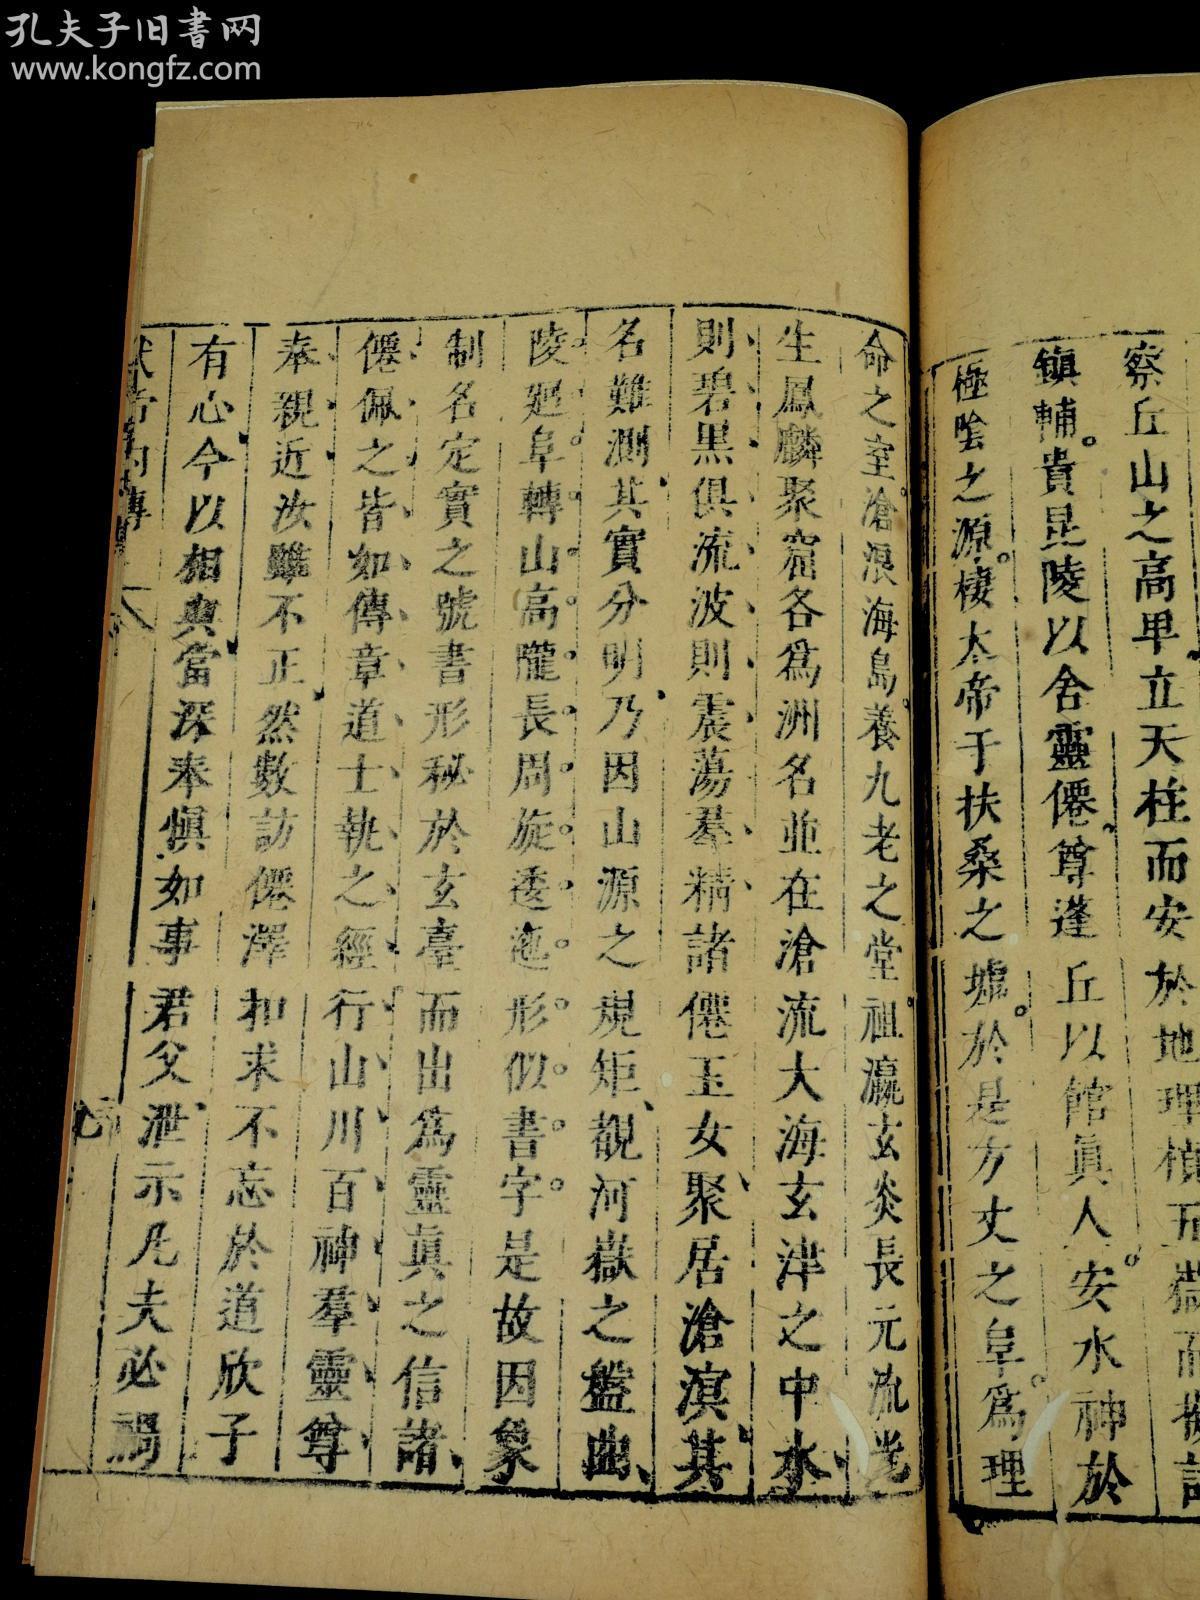 孔夫子旧书网
www.kongfz.com
察丘山之高卑立天柱而安於地理植五嶽而擬諸
鎮輔貴昆陵以舍靈僊尊蓬丘以館眞人安水神於
極陰之源棲太帝于扶桑之墟於是方丈之阜爲理
命之室滄浪海島養九老之堂祖瀛玄炎長元流光
生鳳麟聚窟各爲洲名並在滄流大海玄津之中水
則碧黑俱流波則震蕩羣精諸僊玉女聚居滄溟其
名難測其實分明乃因山源之規矩覩河嶽之盤曲
陵𢌞阜轉山高隴長周旋逶迤形似書字是故因象
制名定實之號書形秘於玄臺而出爲靈眞之信諸
僊佩之皆如傳章道士執之經行山川百神羣靈尊
奉親近汝雖不正然數訪僊澤扣求不忘於道欣子
有心今以相與當深奉愼如事君父泄示凡夫必禍